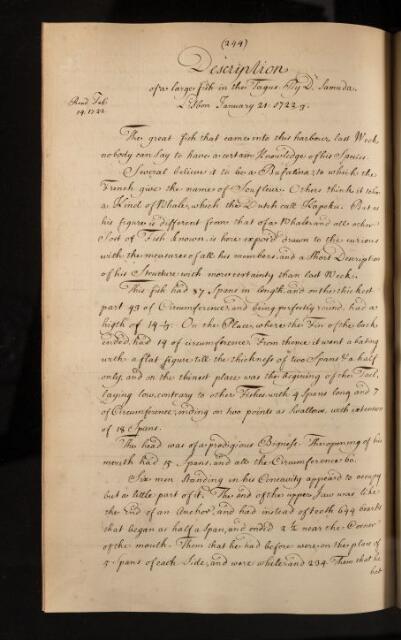 (244)
Description
of a large fish in the Tagus. By Dr. Samuda.
Lisbon January 21. 1722/3.
Read Feb.
14. 1722.
The great fish that came into this harbour last Week
nobody can say to have a certain Knowledge of his Species.
Several believe it to be a Bufalina, to which the
French give the names of Soufleur. Others think it to be
a Kind of Whale, which the Dutch call Kapoku. But as
his figure is different from that of a Whale and all other
Sort of Fish known, is here expos'd drawn to the curious
with the measures of all his members, and a Short Description
of his Structure with more certainty than last Week.
This fish had 87 Spans in length, and on the thickest
part 43 of Circumference, and being perfectly round, had a
higth of 14 1/3. On the Place, where the Fin of the back
ended, had 19 of circumference. From thence it went abating
with a flat figure till the thickness of two Spans & a half
only, and on the thinest place was the begining of the Tail,
laying low, contrary to other Fishes with 9 Spans long and 7
of Circumference, ending on two points as Swallow, with extension
of 18 Spans.
The head was of a prodigious Bigness. The opening of his
mouth had 15 Spans, and all the Circumference 60.
Six men standing in his Concavity appeard to occupy
but a little part of it. The end of the upper Jaw was like
the End of an Anchor, and had instead of teeth 644 beards
that began at half a Span, and ended 2 1/2 near the Corner
of the mouth. Them that he had before were on the place of
5 Spans of each Side, and were white and 234. Them that he
but